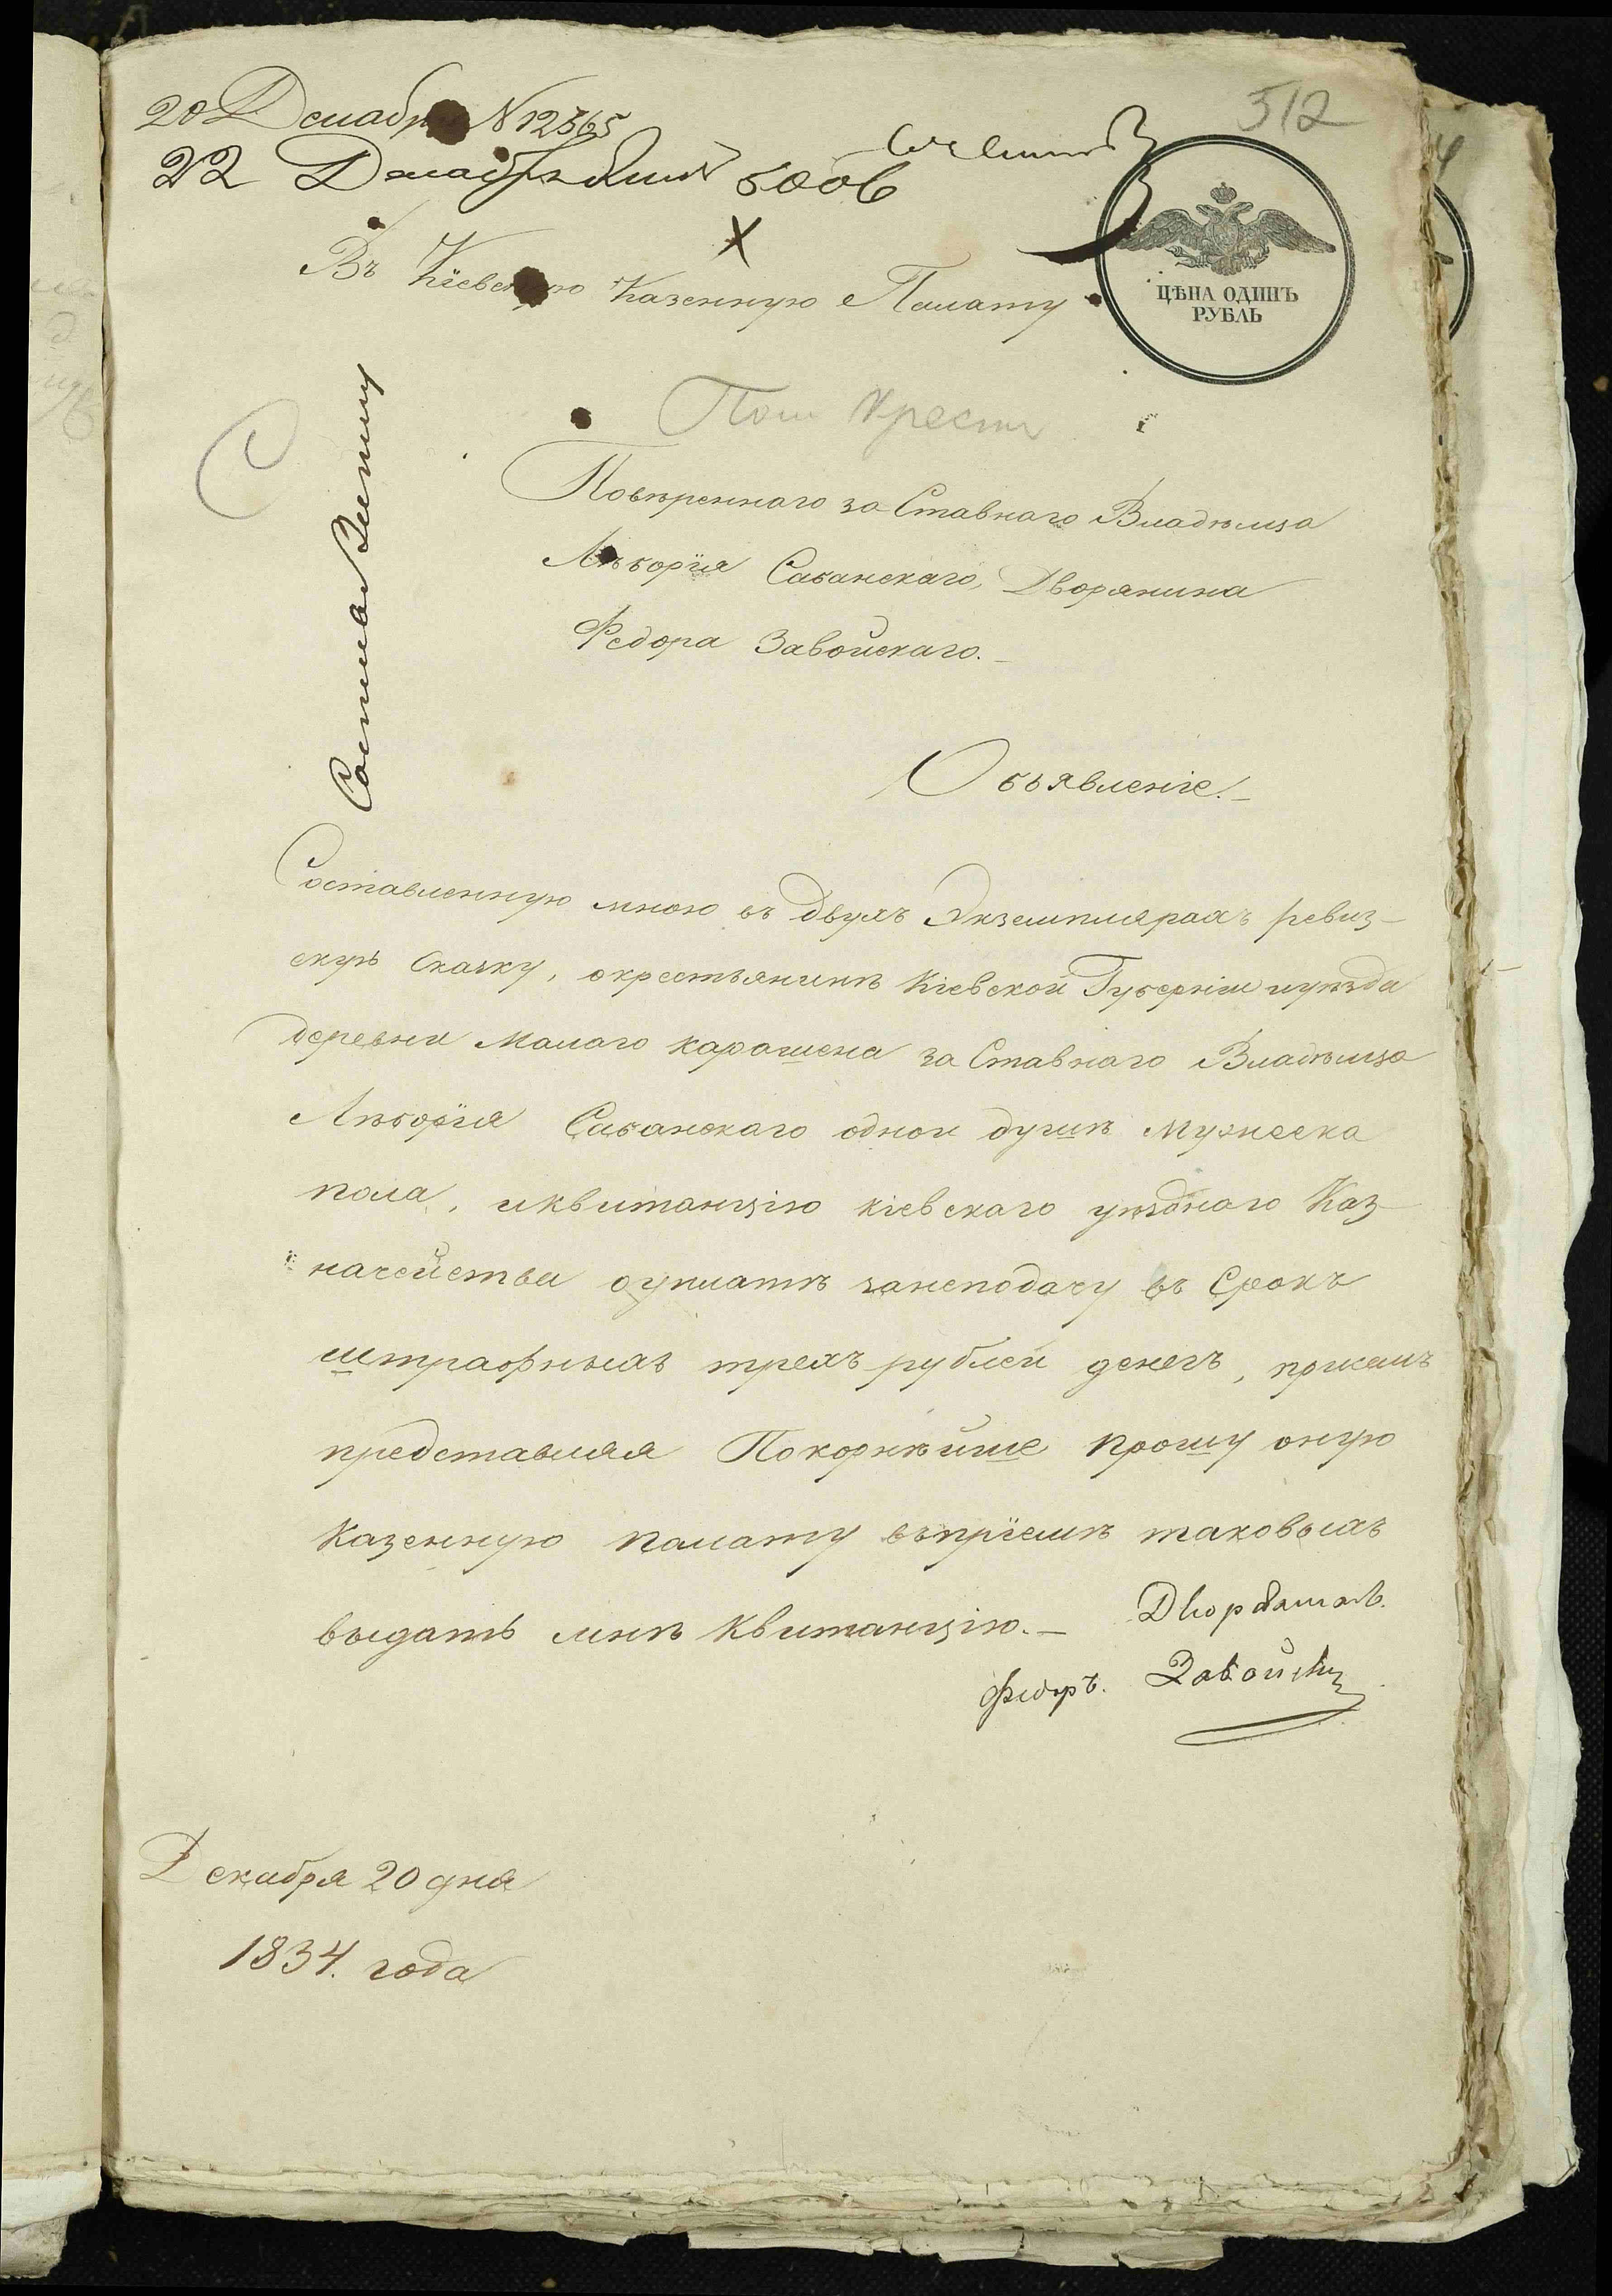 512
20 Декабря N 12365
22 Декабря
Въ Кіевскую Казенную Палату
ЦѢНА ОДИНЪ
РУБЛЬ
Пом Крест
Повѣреннаго за Ставнаго Владѣльца
Лѣборїя Сабанскаго, Дворянина
Федора Завойскаго.
Объявленіе.
Составленную мною въ двухъ Экземплярахъ ревиз-
скую Сказку, окрестьянинѣ Кіевской Губерніи иуѣзда
деревни Малаго карашена за Ставнаго Владѣльца
Лѣборїя Сабанскаго одной душѣ Мужеска
пола, иквитанцію кіевскаго уѣзднаго Каз-
начейства оуплатѣ занеподачу въ Срокъ
штрафныхъ трехъ рублей денегъ, присемъ
представляя Покорнѣйше прошу оную
Казенную палату въпрїемѣ таковыхъ
выдать мнѣ Квитанцію.
Дворянинъ.
Федоръ. Завойскій
Декабря 20 дня
1834. года